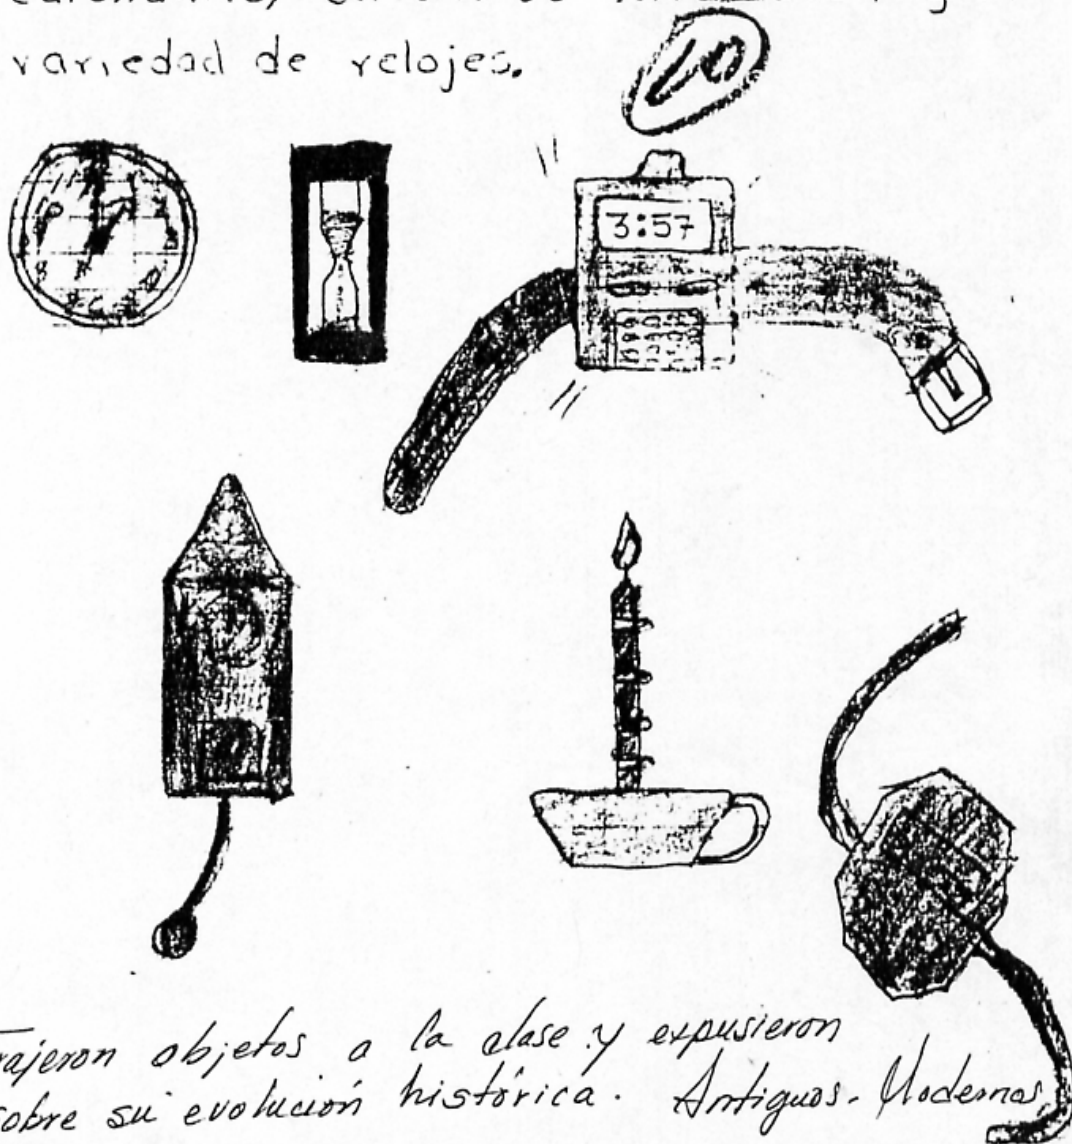 variedad de relojes.
10
3:57
Trajeron objetos a la clase y expusieron
sobre su evolución histórica. Antiguos. Modernos